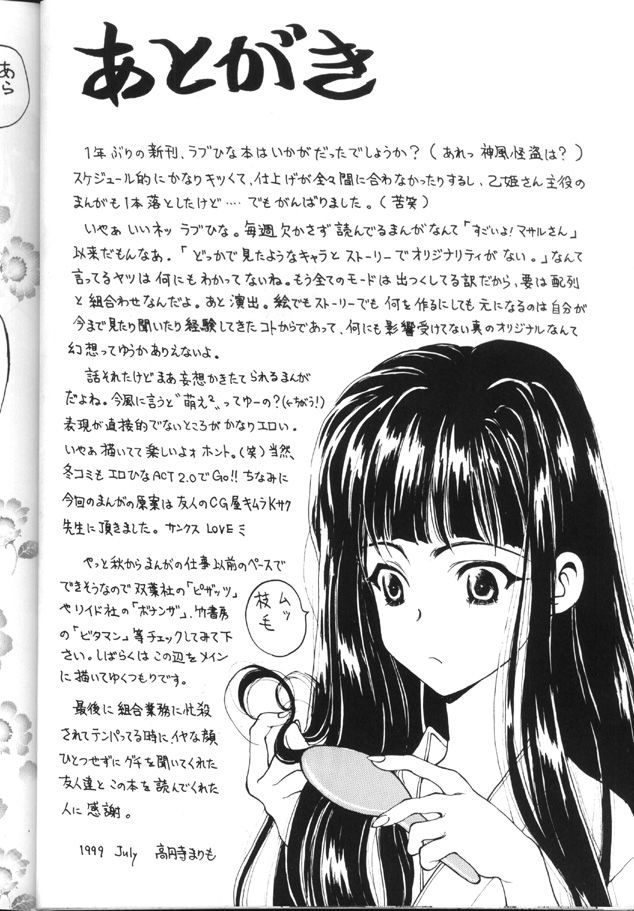 あら
あとがき
1年ぶりの新刊、ラブひな本はいかがだったでしょうか？（あれっ神風怪盗は？）
スケジュール的にかなりキツくて、仕上げが全々間に合わなかったりするし、乙姫さん主役の
まんがも1本落としたけど‥‥でもがんばりました。（苦笑）
いやぁいいネッ ラブひな。毎週欠かさず読んでるまんがなんて「すごいよ！マサルさん」
以来だもんなあ．「どっかで見たようなキャラとストーリーでオリジナリティがない。」なんて
言ってるヤツは何にもわかってないね。もう全てのモードは出つくしてる訳だから、要は配列
と組合わせなんだよ。あと演出。絵でもストーリーでも何を作るにしても元になるのは自分が
今まで見たり聞いたり経験してきたコトからであって、何にも影響受けてない真のオリジナルなんて
幻想ってゆうかありえないよ。
話それたけどまあ妄想かきたてられるまんが
だよね。今風に言うと“萌え〜”ってゆーの？（←ちがう！）
表現が直接的でないところがかなりエロい．
いやぁ描いてて楽しいよォホント。（笑）当然、
冬コミもエロひなACT 2.0でGo!! ちなみに
今回のまんがの原案は友人のCG屋キムラKサク
先生に頂きました。サンクス LOVEミ
やっと秋からまんがの仕事以前のペースで
できそうなので双葉社の「ピザッツ」
やリイド社の「ボナンザ」、竹書房
の「ビタマン」等チェックしてみて下
さい。しばらくはこの辺をメイン
に描いてゆくつもりです。
最後に組合業務に忙殺
されてテンパってる時に、イヤな顔
ひとつせずにグチを聞いてくれた
友人達とこの本を読んでくれた
人に感謝。
1999 July 高円寺まりも
ムッ
枝毛